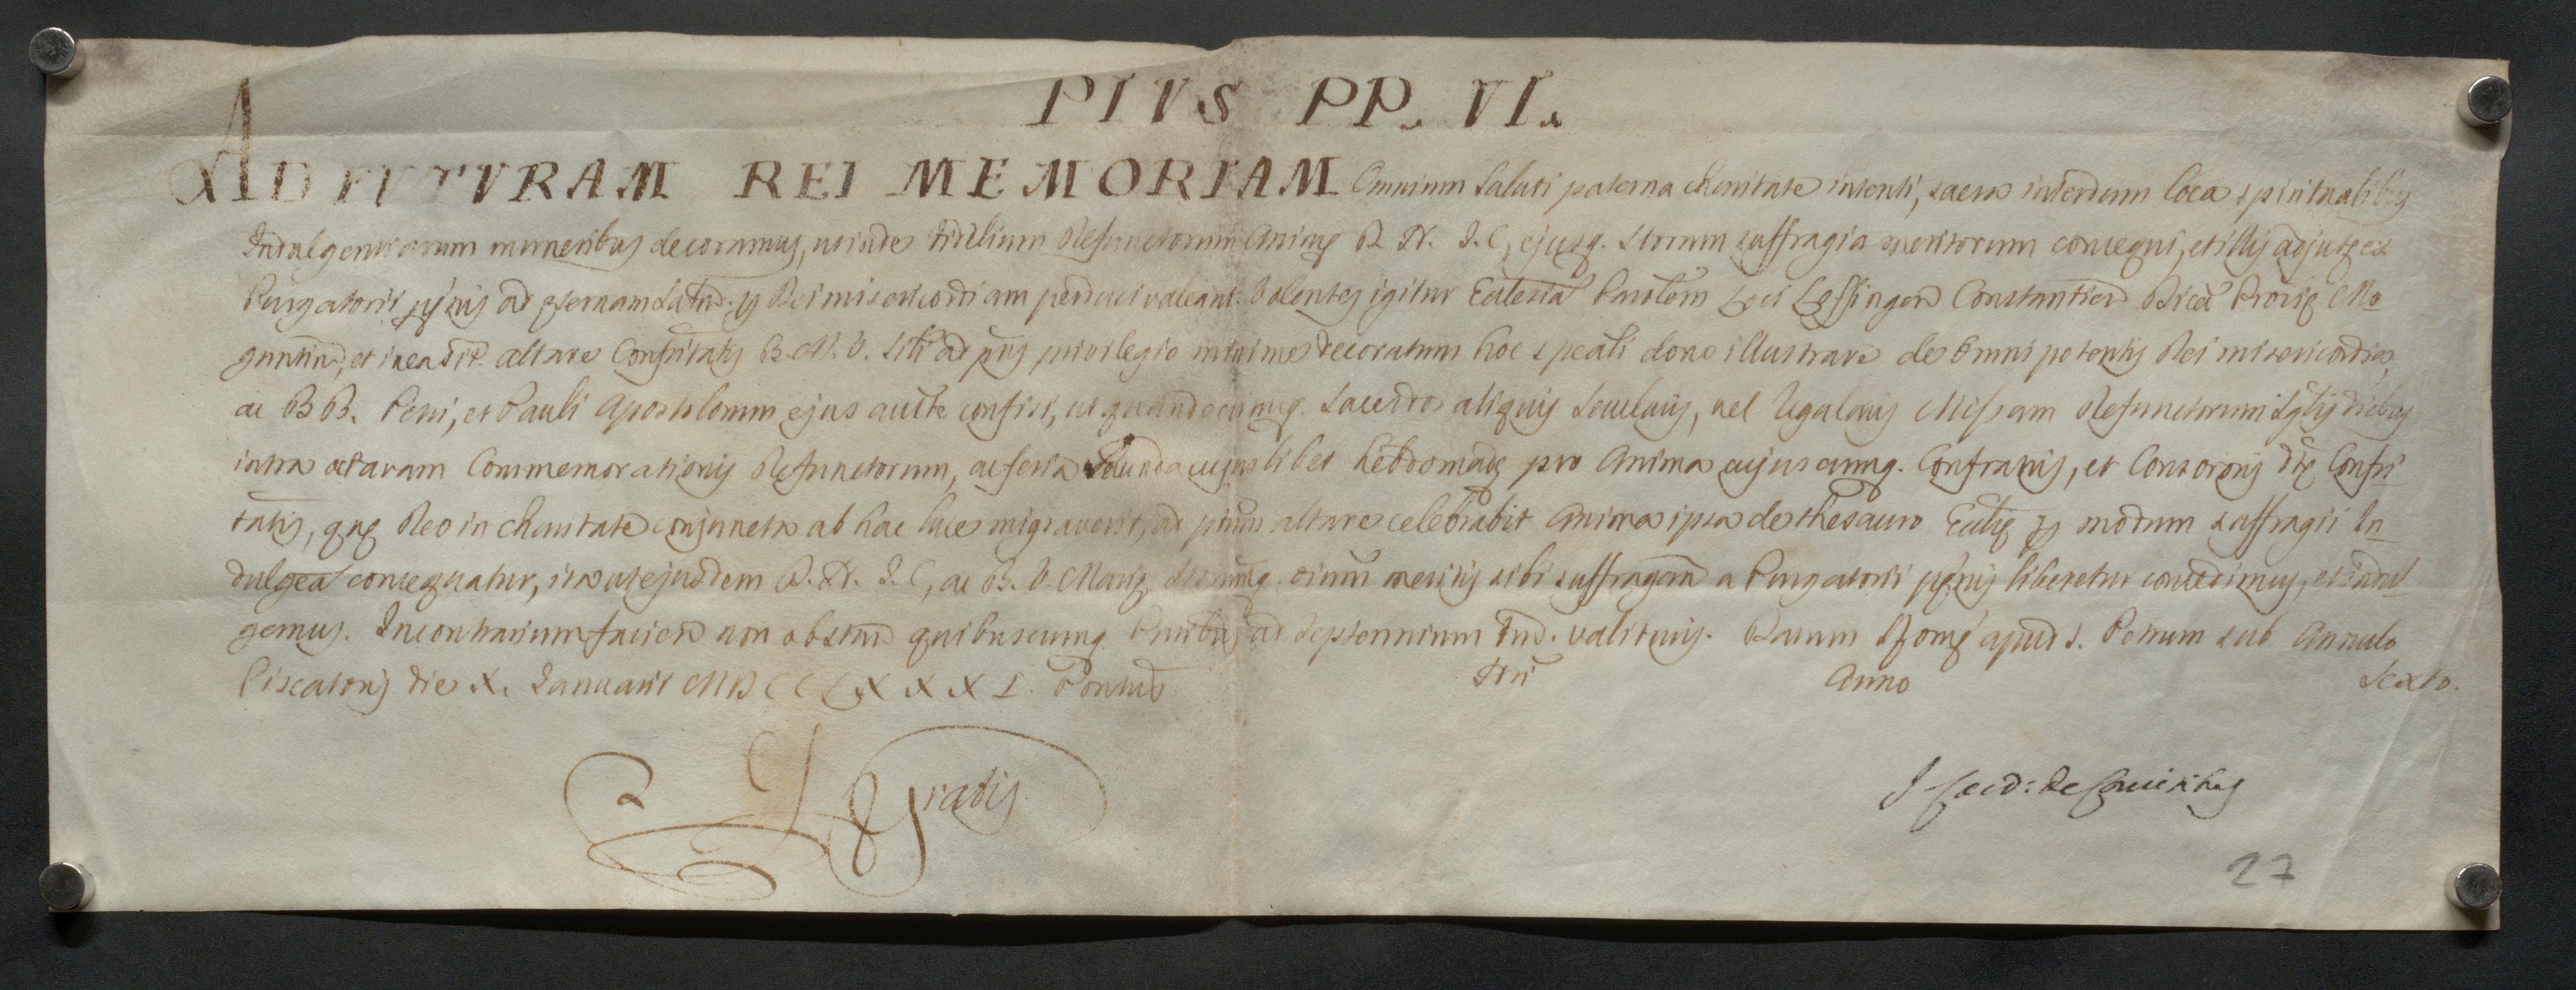 PIVS PP. VI.
AD FVTVRAM REI MEMORIAM Omnium Saluti paterna charitate intenti, sacra interdum Loca spiritualibus
Indulgentiarum muneribus decoramus, ut inde Fidelium Defunctorum Animę D. N. J. C, ejusq. Storum suffragia meritorum consequi, et illis adjutę ex
Purgatorii pęnis ad ęternam Salud. p Dei misericordiam perduci valeant. Volentes igitur Ecclesia Parolem Loci Constantien Dicec Provię Mo-
guntin, et in ea sit. altare Confritatis B. M. V. Siti ad pns privilegio minime decoratum hoc speali dono illustrare de Omnipotentis Dei misericordia,
ac BB. Petri, et Pauli Apostolorum ejus aucte confisi, ut quandocumq. Sacerdos aliquis Secularis, vel Regularis Missam Defunctorum Sglis diebus
intra octavam Commemorationis Defunctorum, ac feria Secunda cujuslibet hebdomadę pro Anima cujuscumq. Confratris, et Consororis dtę Confri-
tatis, quę Deo in charitate conjuncta ab hac luce migraverit, ad pntum altare celebrabit Anima ipsa de thesauro Eccltię p modum suffragii In-
dulgea consequatur, ita ut ejusdem D. N. J. C, ac B. V. Marię, Storumq. oium meritis sibi suffragan a Purgatorii pęnis liberetur concedimus, et indul-
gemus. In contrarium facien non obstan quibuscumq. Pntibus ad Septennium tnd. valituris. Datum Romę apud S. Petrum sub Annulo
Piscatoris die X. Januarii MDCCLXXXI. Pontus Nri Anno Sexto.
Gratis
J Card: De Comitibus
27